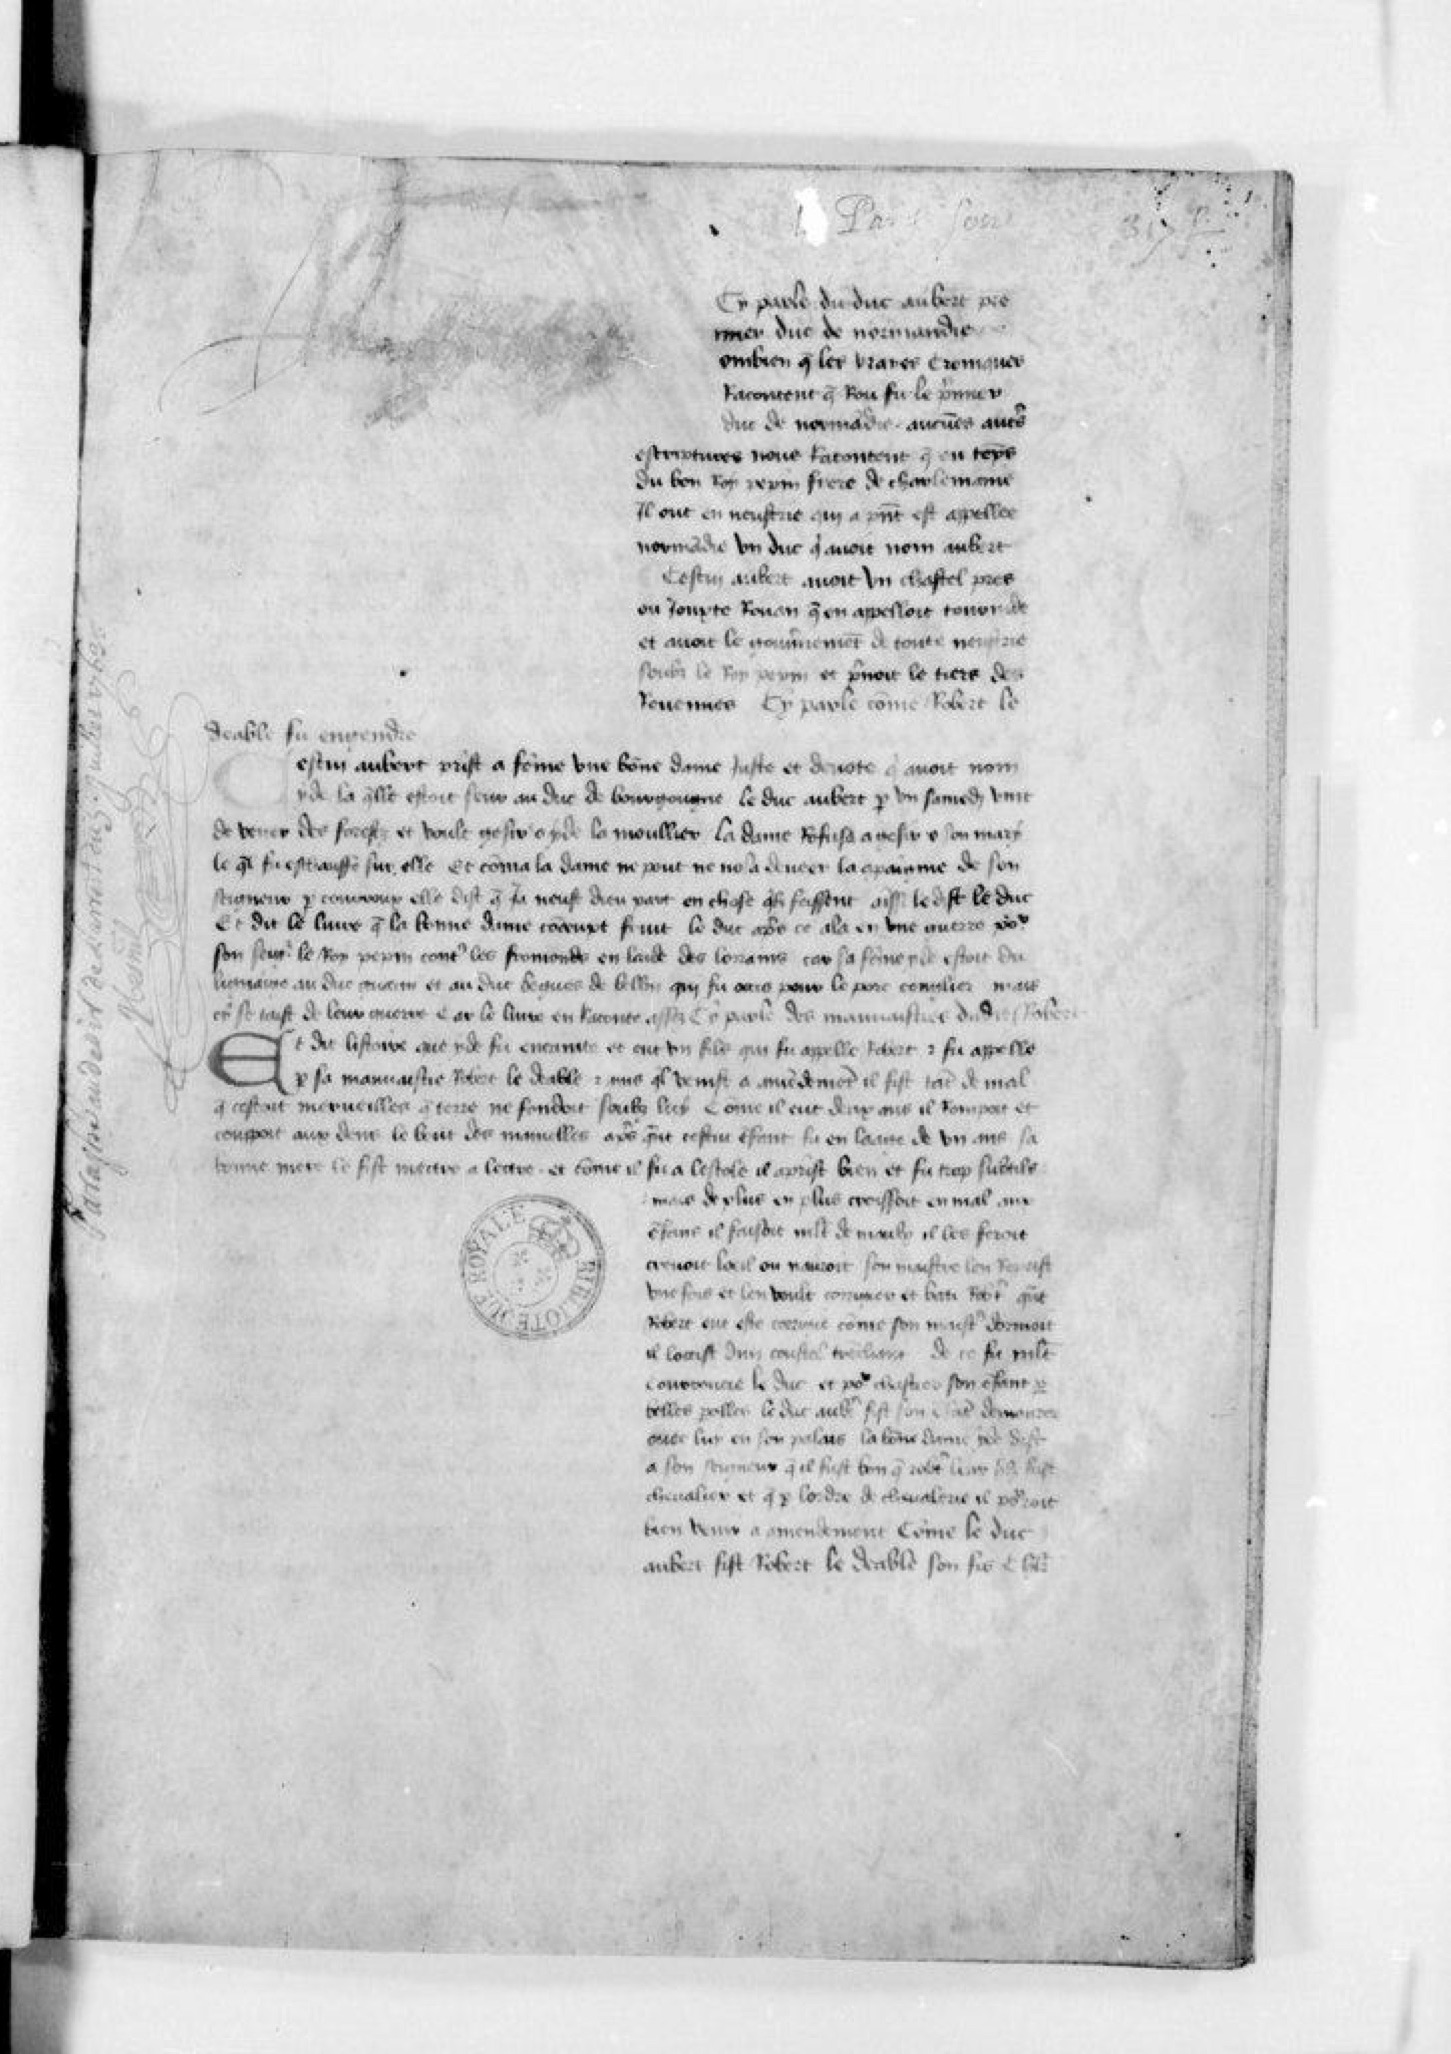 Cy parle du duc aubert pre
mier duc de normandie
ombien q̃ les vraies croniques
Racontent q̃ Rou fu le p̃mier
duc de normãdie aucũes autẽs
escriptures nous Racontent q̃ en tẽps
du bon Roy pepin frere de charlemaine
Il out en neustrie qui a p̃nt est appellee
normãdie vn duc q̃ auoit nom aubert
Cestui aubert auoit vn chastel pres
ou Jouxte Rouan q̃ en appelloit tourinde
et auoit le gouũnemẽt de toute neustrie
soubz le Roy pepin et p̃noit le tiers des
Reuenues Cy parle cõme Robert le
deable fu engendre
estui aubert prist a fẽme vne bõne dame Juste et deuote q̃ auoit nom
yde la q̃lle estoit seur au duc de bourgougne le duc aubert p vn samedy vint
de vener des forestz et voult gesir o yde la moullier la dame Refusa a gesir o son mary
le q̃l fu eschauffe sur elle Et cõme la dame ne pout ne nosa deueer la de son
seigneur p courroux elle dist q̃ Ja neust dieu part en chose q̃lz feissent aissi le dist le duc
Et dit le liure q̃ la bonne dame cõceupt fruit le duc ap̃s ce ala en vne guerre po^r
son seig^r le Roy pepin cont^r les fromonds en laide des lorrains car sa fẽme yde estoit du
lignaige au duc guarin et au duc begues de bellin qui fu occis pour le porc mais
cy se taist de leur guerre Car le liure en Raconte assez Cy parle des mauuaistiez dudit Robert
Et dit listoire que yde fu encainte et eut vn filz qui fu appelle Robert z fu appelle
p sa mauuaistie Robert le deable z ains q̃l venist a amẽdemẽt il fist tãt de mal
q̃ cestoit merueilles q̃ terre ne fondoit soubz luy Cõme il eut deux ans il Rompoit et
couppoit aux dens le bout des mamelles ap̃s q̃nt cestui ẽfant fu en laage de vn ans sa
bonne mere le fist mectre a lectre et cõme il fu a lescole il aprist bien et fu trop subtils
mais de plus en plus croissoit en mal aux
ẽfans il faisoit mlt de maulx il les feroit
creuoit loeil ou nauroit son maistre len Reprist
vne fois et len voult corriger et bati Rob^t q̃nt
Robert eut este corrige cõme son maist^r dormoit
il loccist dun coustel trẽchant de ce fu mlt
courrouce le duc et po^r chastier son ẽfant p
belles polles le duc aub^t fist son ẽfãt demourer
ouec luy en son palais la bõne dame yde dist
a son seigneur q̃ il fust bon q̃ rob^t leur filz fust
cheualier et q̃ p lordre de cheualerie il po^rroit
bien venir a amendement Cõme le duc
aubert fist Robert le deable son fis ch̃lr
BIBLIOTEQUE ROYALE